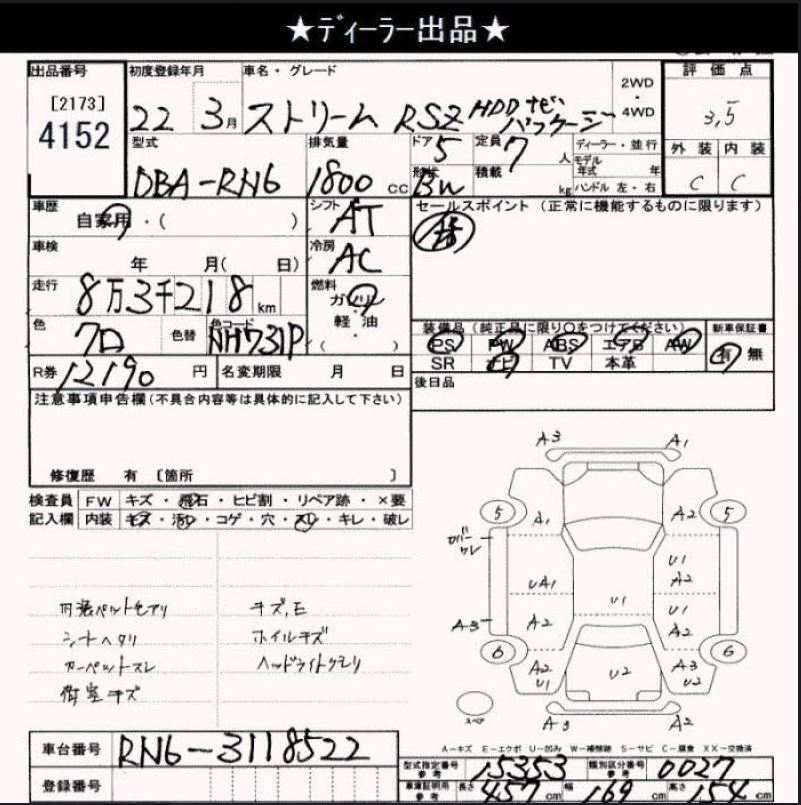 ★ディーラー出品★
出品番号 初度登録年月 車名・グレード 2WD・4WD 評価点
[2173]
4152
22 3月 ストリーム RSZ HDDナビパッケージ 3,5
型式 排気量 ドア 定員 ディーラー・並行 外装 内装
DBA-RN6 1800cc 5 7人 モデル年式 年 C C
形状 積載 kg ハンドル 左・右
BW
車歴 シフト セールスポイント (正常に機能するものに限ります)
自家用・( ) AT
車検 冷房
年 月( 日) AC
走行 燃料
8万3千218km ガソリン
軽油
( )
色 色替 色コード 装備品(純正品に限り○をつけてください) 新車保証書
NH731P PS PW ABS エアB AW 有 無
SR ナビ TV 本革
R券 12190円 名変期限 月 日 後日品
注意事項申告欄(不具合内容等は具体的に記入して下さい)
修復歴 有 〔箇所 〕
検査員 FW キズ・飛石・ヒビ割・リペア跡・×要
記入欄 内装 キズ・汚レ・コゲ・穴・スレ・キレ・破レ
内装ペットモアリ キズ,E
シートヘタリ ホイルキズ
カーペットスレ ヘッドライトクモリ
荷室キズ
A3 A1
5 A1 A2 5
カバーワレ
U1
A2
UA1 U1
U1
A2
A3 A2
6 A2 U1 U2 A3 U2 6
スペア A3 A2
A-キズ E-エクボ U-凹み W-補修跡 S-サビ C-腐食 XX-交換済
車台番号 RN6-3118522
型式指定番号 参考 15353 類別区分番号 参考 0027
登録番号
車庫証明用 参考 長さ 457cm 幅 169cm 高さ 154cm